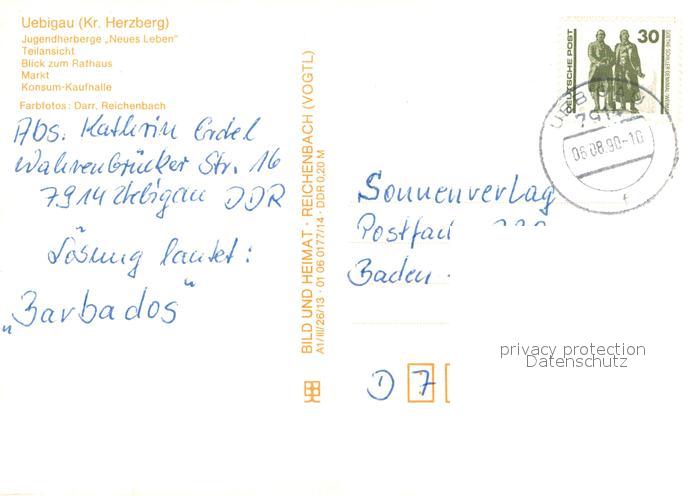 Uebigau (Kr. Herzberg)
Jugendherberge „Neues Leben"
Teilansicht
Blick zum Rathaus
Markt
Konsum-Kaufhalle
Farbfotos: Darr, Reichenbach
Abs. Kathrin Erdel
Wahrenbrücker Str. 16
7914 Uebigau DDR
Lösung lautet:
„Barbados"
BILD UND HEIMAT · REICHENBACH (VOGTL)
A1/III/26/13 · 01 06 0177/14 · DDR 0,20 M
DEUTSCHE POST
30
GOETHE-SCHILLER-DENKMAL · WEIMAR
UEBIGAU
7914
06.08.90-10
f
Sonnenverlag
Postfach
Baden
D 7
privacy protection
Datenschutz